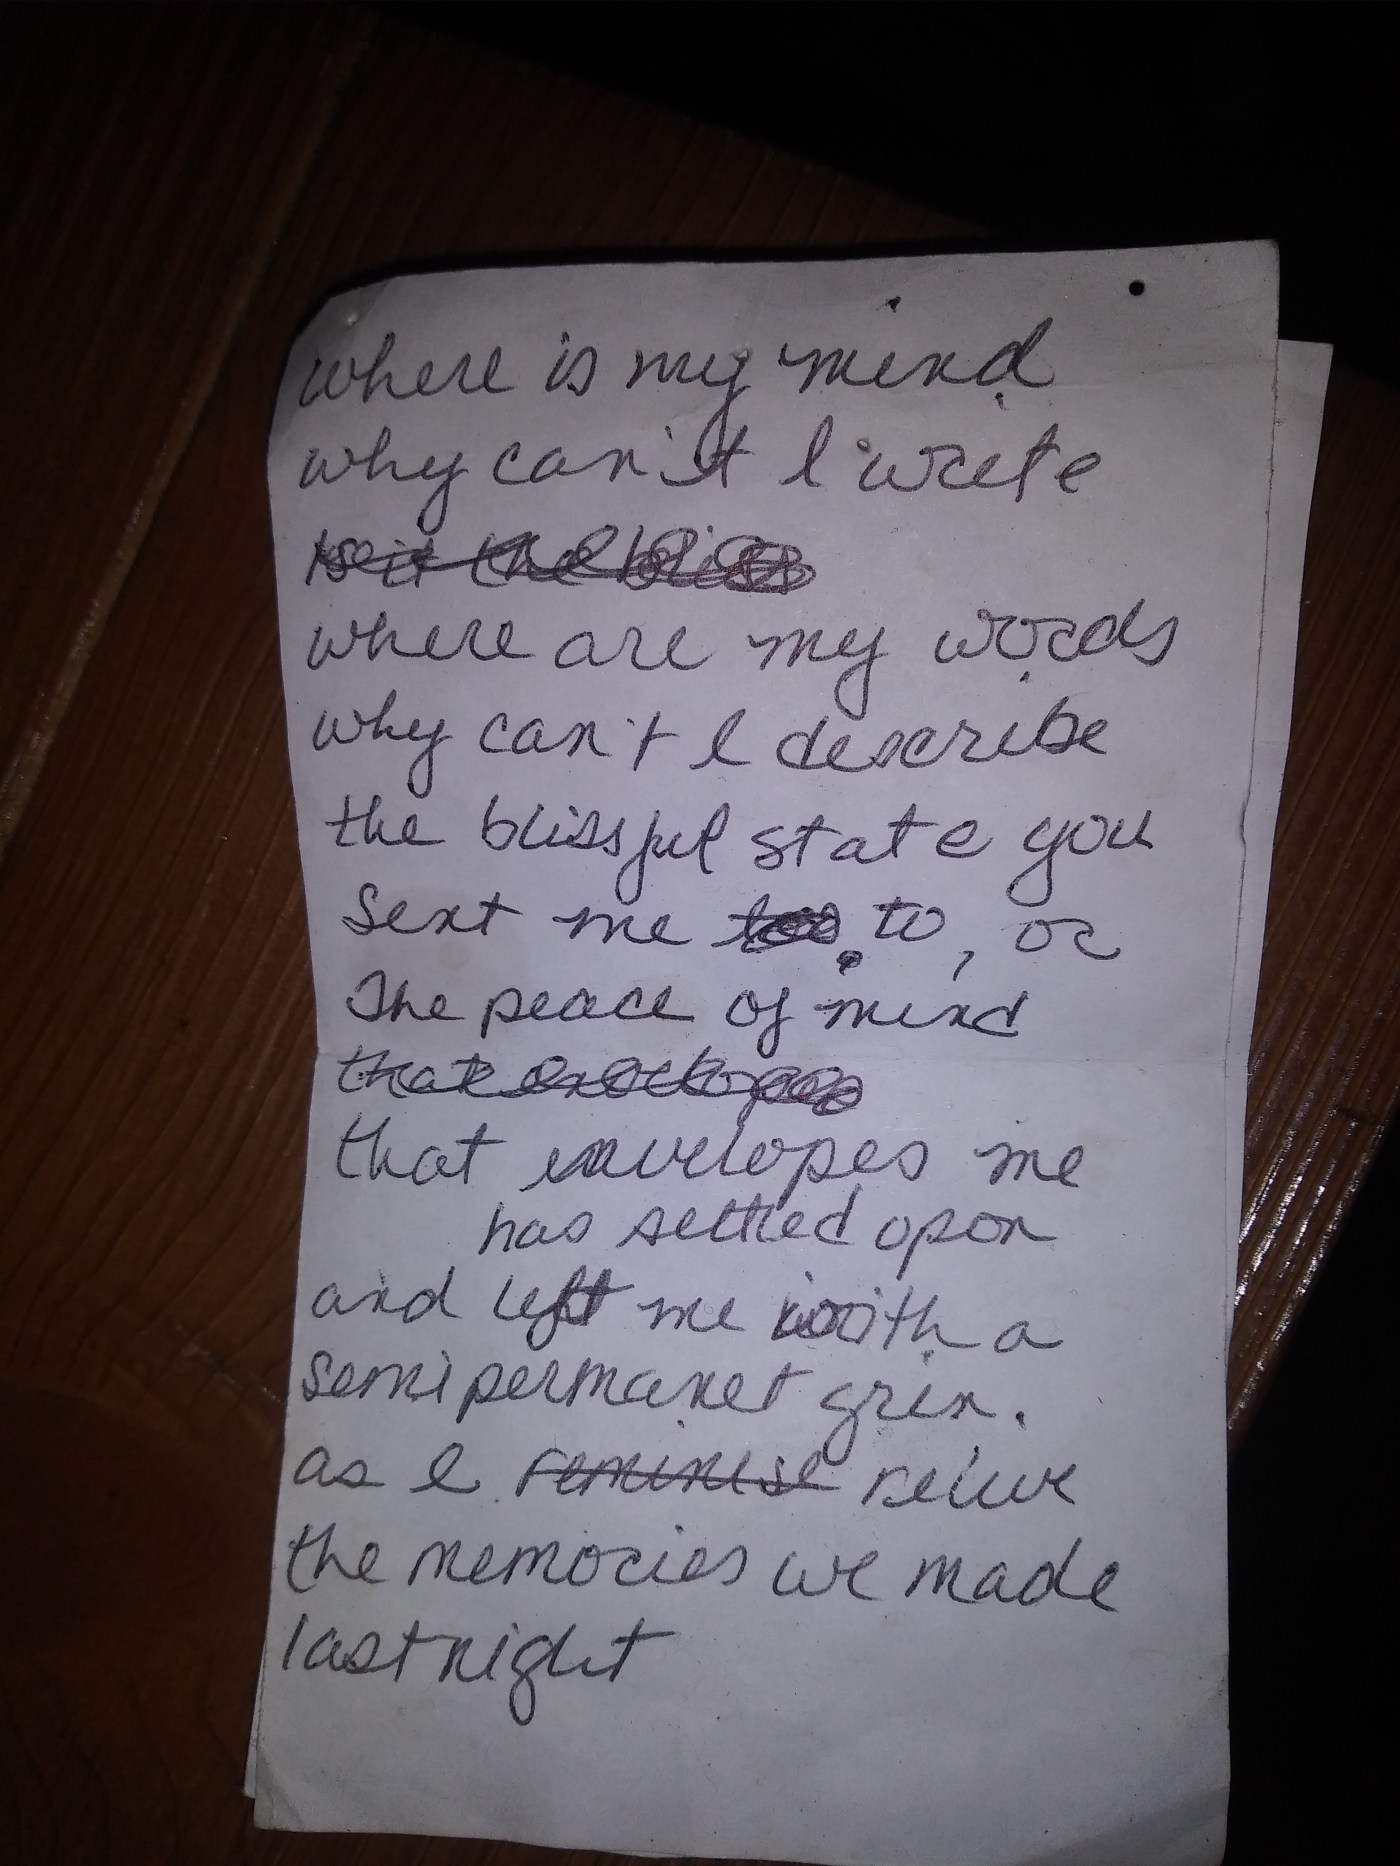 where is my mind
why can't I write
is it the bliss
where are my words
why can't I describe
the blissful state you
sent me to, or
The peace of mind
that
that envelopes me
has settled upon
and left me with a
semipermanet grin.
as I reminise relive
the memories we made
last night